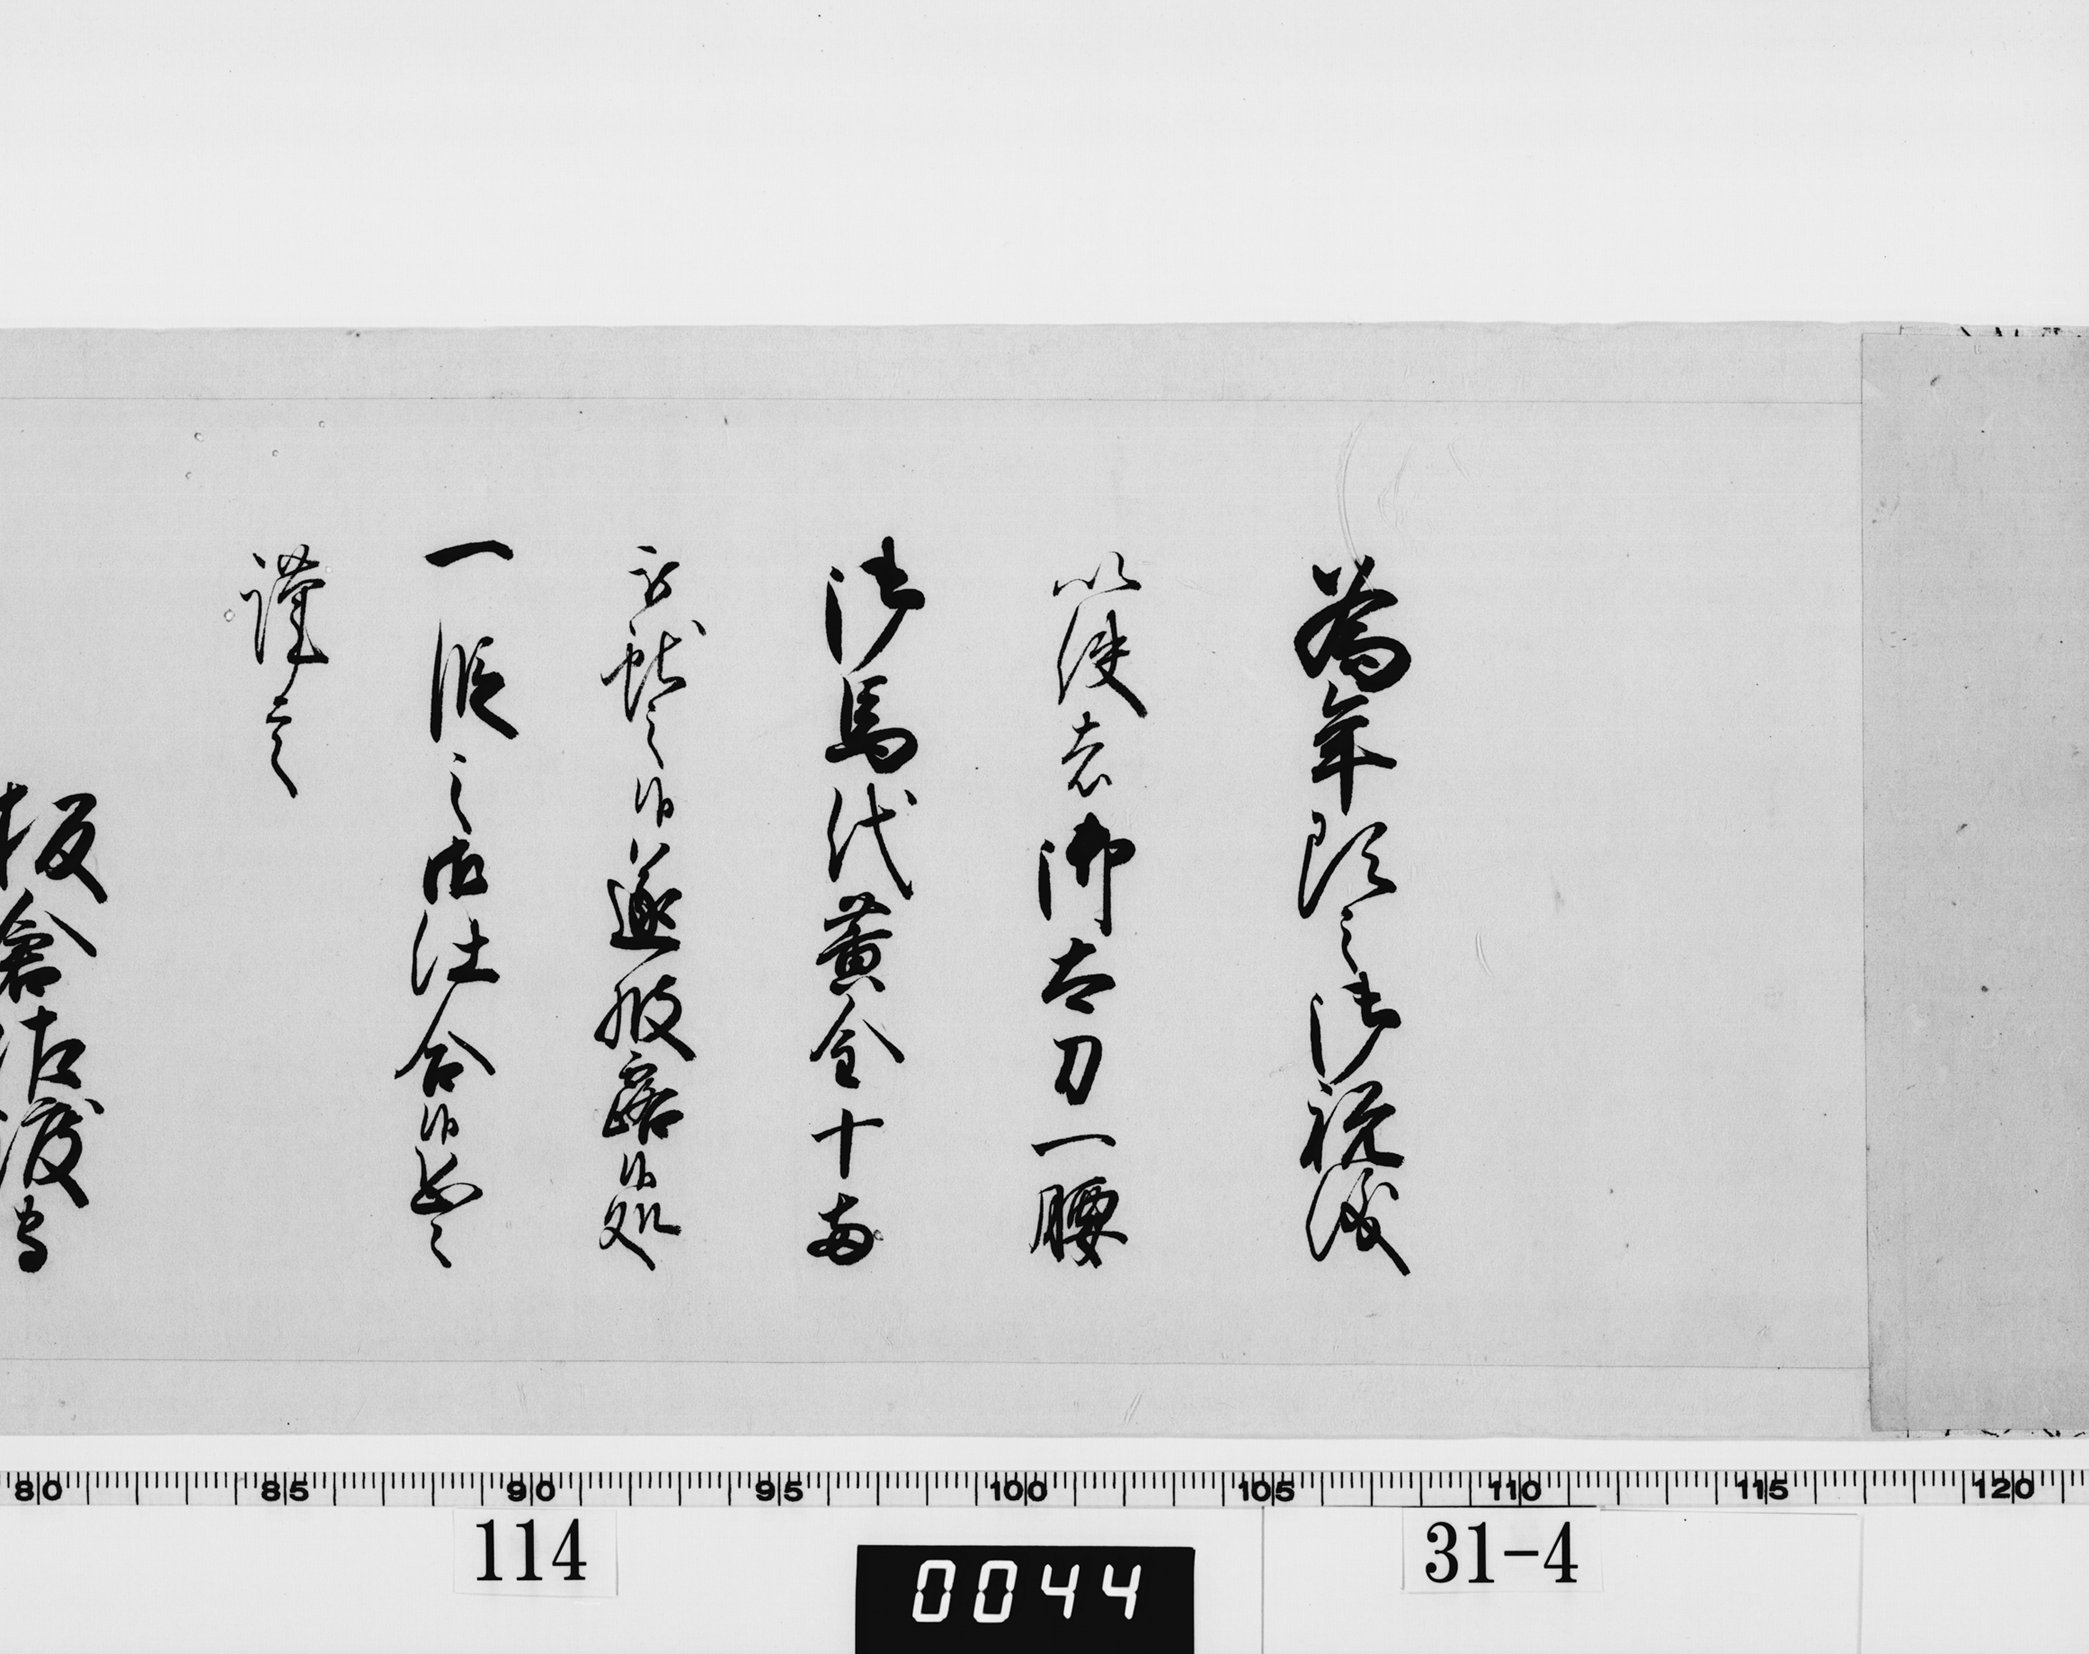 為年頭之御祝儀
以使者御太刀一腰
御馬代黄金十両
被献之候遂披露候処
一段之御仕合候恐々
謹言
板倉佐渡守
80 85 90 95 100 105 110 115 120
114
0044
31-4